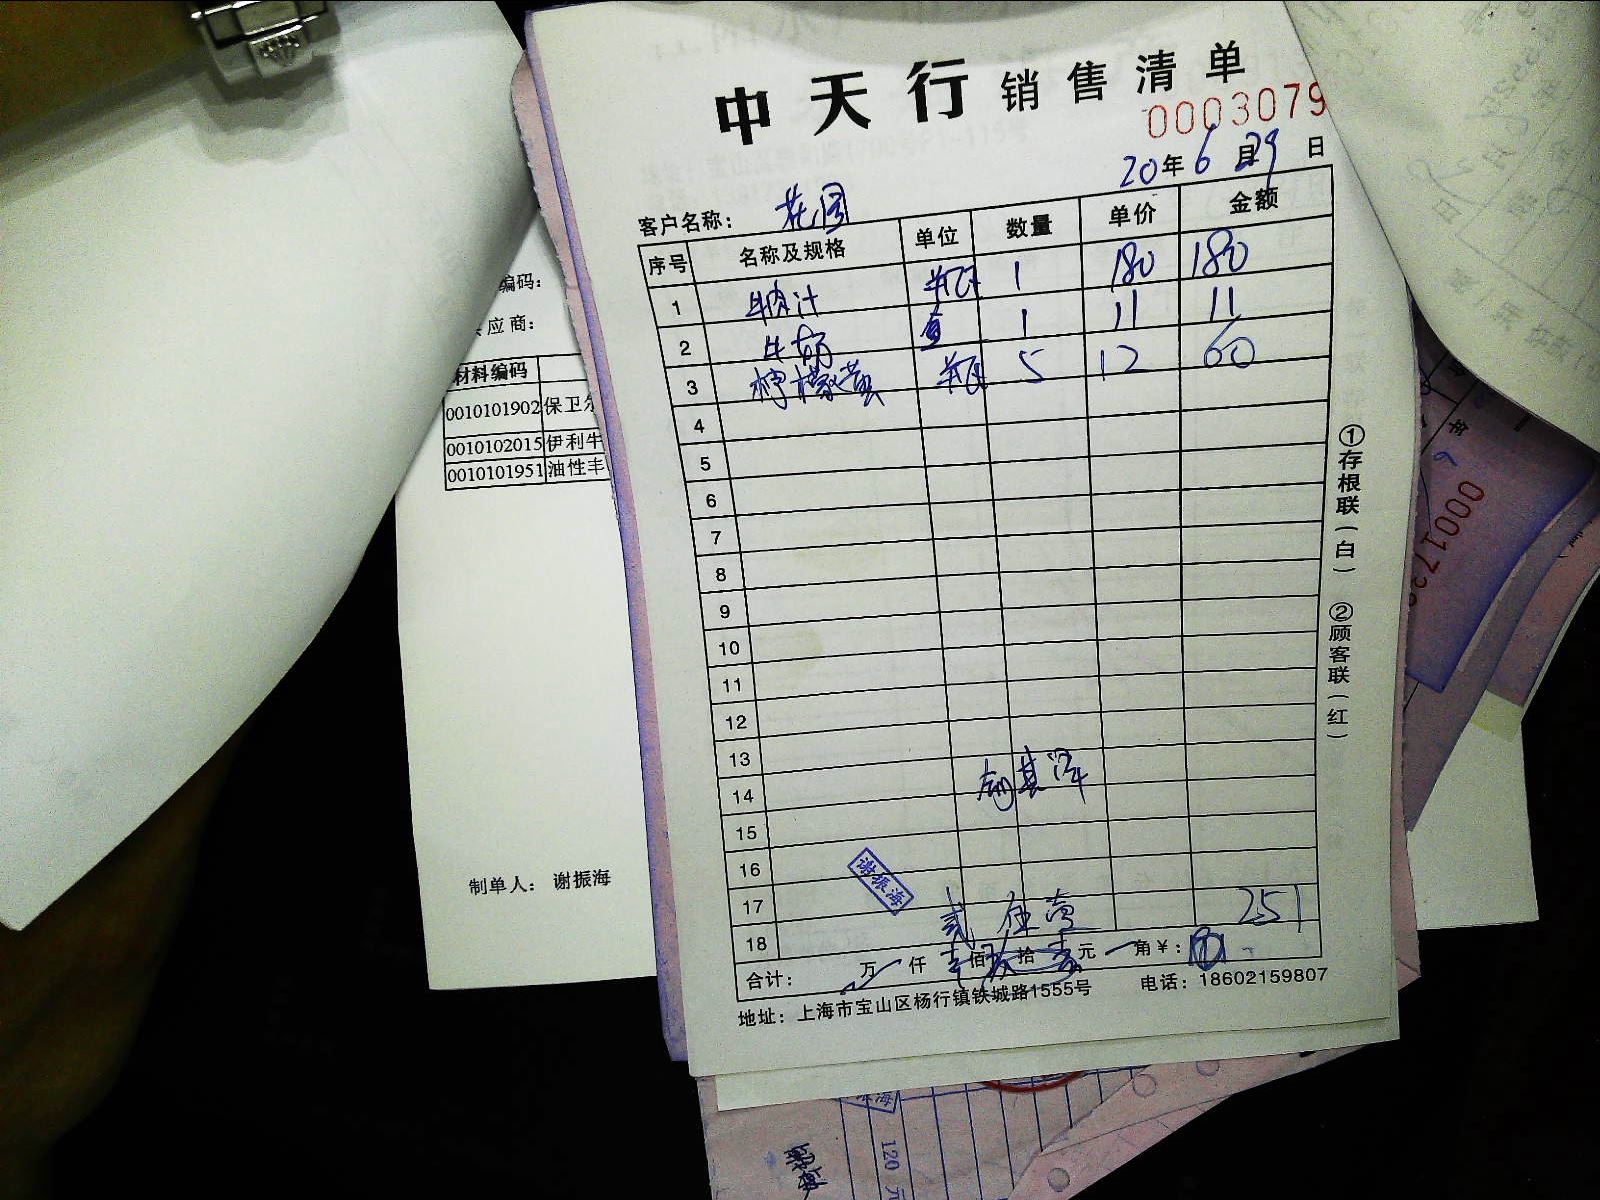 中天行销售清单
0003079
20年6月29日
客户名称: 花园
序号 名称及规格 单位 数量 单价 金额
1 牛肉汁 瓶 1 180 180
2 牛奶 1 11 11
3 柠檬黄 瓶 5 12 60
4
5
6
7
8
9
10
11
12
13
14
15
16
谢振海
17 贰 伍 壹 251
18
合计: 万 仟 佰 拾 元 角 ¥:
地址: 上海市宝山区杨行镇铁城路1555号 电话: 18602159807
①存根联(白) ②顾客联(红)
编码:
应商:
材料编码
0010101902 保卫尔
0010102015 伊利牛
0010101951 油性丰
制单人: 谢振海
00017
120 元